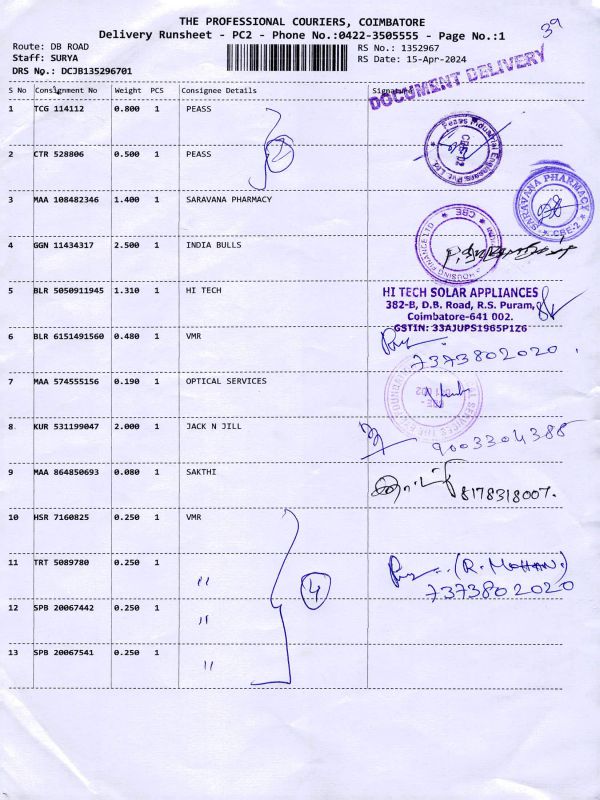 39
THE PROFESSIONAL COURIERS, COIMBATORE
Delivery Runsheet - PC2 - Phone No.:0422-3505555 - Page No.:1
Route: DB ROAD
RS No.: 1352967
Staff: SURYA
RS Date: 15-Apr-2024
DRS No.: DCJB135296701
DOCUMENT DELIVERY
S No Consignment No Weight PCS Consignee Details Signature
1 TCG 114112 0.800 1 PEASS
Peass Industrial Engineers Pvt Ltd.
2 CTR 528806 0.500 1 PEASS
2
3 MAA 108482346 1.400 1 SARAVANA PHARMACY
SARAVANA PHARMACY
CBE-2
4 GGN 11434317 2.500 1 INDIA BULLS
HOUSING FINANCE LTD
CBE
5 BLR 5050911945 1.310 1 HI TECH
HI TECH SOLAR APPLIANCES
382-B, D.B. Road, R.S. Puram,
Coimbatore-641 002.
GSTIN: 33AJUPS1965P1Z6
6 BLR 6151491560 0.480 1 VMR
7373802020
7 MAA 574555156 0.190 1 OPTICAL SERVICES
8 KUR 531199047 2.000 1 JACK N JILL
9003304388
9 MAA 864850693 0.080 1 SAKTHI
8178318007.
10 HSR 7160825 0.250 1 VMR
11 TRT 5089780 0.250 1 "
4
(R. MOHAN)
7373802020
12 SPB 20067442 0.250 1 "
13 SPB 20067541 0.250 1 "